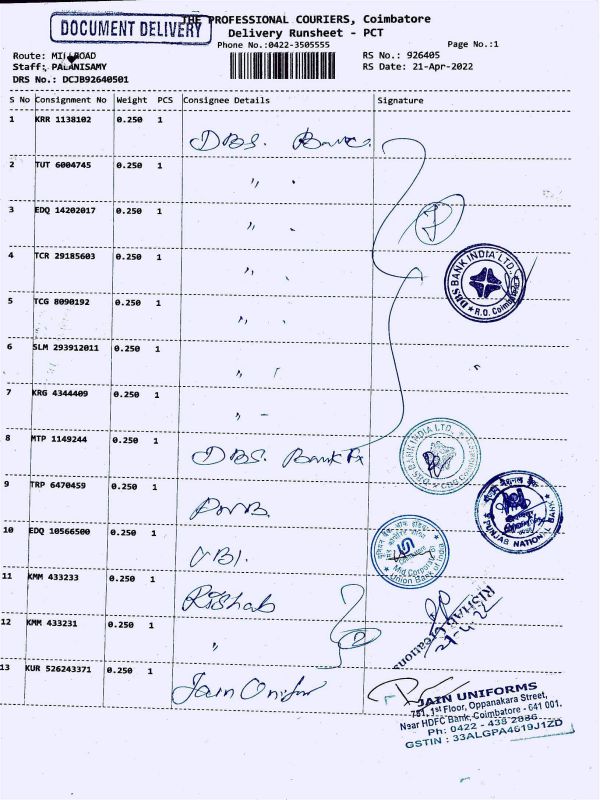 DOCUMENT DELIVERY
THE PROFESSIONAL COURIERS, Coimbatore
Delivery Runsheet - PCT
Phone No.:0422-3505555
Page No.:1
Route: MILLROAD
Staff: PALANISAMY
DRS No.: DCJB92640501
RS No.: 926405
RS Date: 21-Apr-2022
S No Consignment No Weight PCS Consignee Details Signature
1 KRR 1138102 0.250 1 DBS. Bank.
2 TUT 6004745 0.250 1 "
3 EDQ 14202017 0.250 1 "
4 TCR 29185603 0.250 1 "
DBS BANK INDIA LTD.
* R.O. Coimbatore
5 TCG 8090192 0.250 1 "
6 SLM 293912011 0.250 1 "
7 KRG 4344409 0.250 1 "
8 MTP 1149244 0.250 1 DBS. Bank Fx
DBS BANK INDIA LTD.
9 TRP 6470459 0.250 1 PNB.
PUNJAB NATIONAL BANK
10 EDQ 10566500 0.250 1 UBI.
Mid Corporate
Union Bank of India
11 KMM 433233 0.250 1 Rishab
RISHAB Creations
21-4-22
12 KMM 433231 0.250 1 "
13 KUR 526243371 0.250 1 Jain Uniform
JAIN UNIFORMS
781, 1st Floor, Oppanakara Street,
Near HDFC Bank, Coimbatore - 641 001.
Ph: 0422 - 438 2986
GSTIN : 33ALGPA4619J1ZD